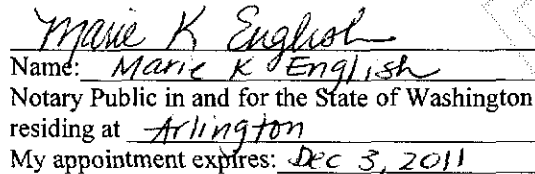 Marie K English
Name: Marie K English
Notary Public in and for the State of Washington
residing at Arlington
My appointment expires: Dec 3, 2011